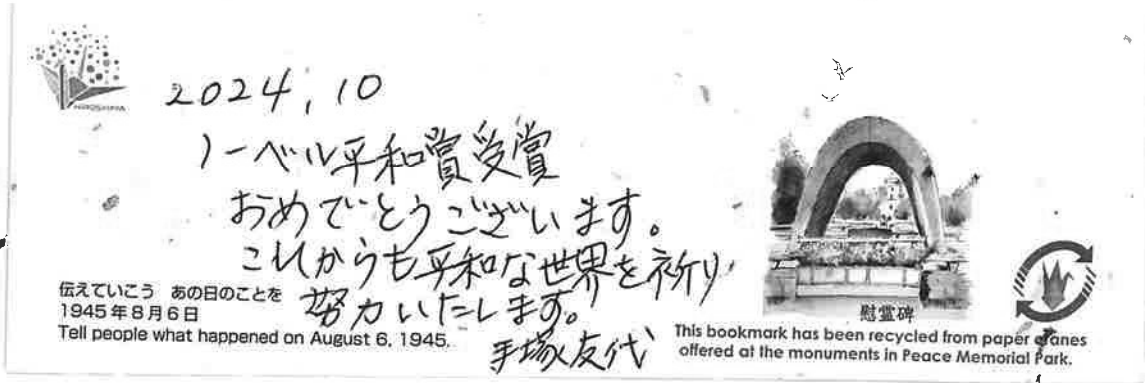 HIROSHIMA
2024,10
ノーベル平和賞受賞
おめでとうございます。
これからも平和な世界を祈り
努力いたします。
手塚友代
伝えていこう あの日のことを
1945年8月6日
Tell people what happened on August 6, 1945.
慰霊碑
This bookmark has been recycled from paper cranes
offered at the monuments in Peace Memorial Park.